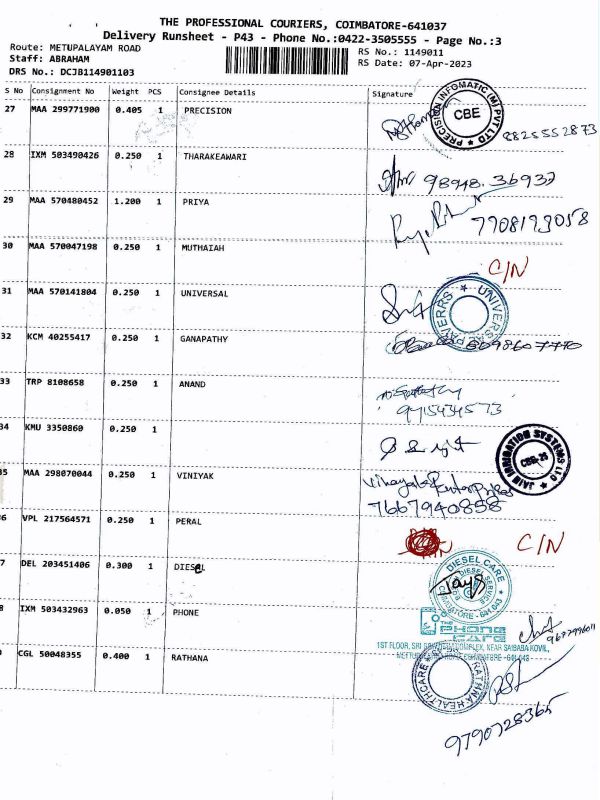 THE PROFESSIONAL COURIERS, COIMBATORE-641037
Delivery Runsheet - P43 - Phone No.:0422-3505555 - Page No.:3
Route: METUPALAYAM ROAD
RS No.: 1149011
Staff: ABRAHAM
RS Date: 07-Apr-2023
DRS No.: DCJB114901103
S No Consignment No Weight PCS Consignee Details Signature
27 MAA 299771900 0.405 1 PRECISION
PRECISION INFOMATIC (M) PVT LTD
CBE
8825552873
28 IXM 503490426 0.250 1 THARAKEAWARI
98948 36937
29 MAA 570480452 1.200 1 PRIYA
7708193058
30 MAA 570047198 0.250 1 MUTHAIAH
C/N
31 MAA 570141804 0.250 1 UNIVERSAL
UNIVERSAL PAVERRS
32 KCM 40255417 0.250 1 GANAPATHY
8098607770
33 TRP 8108658 0.250 1 ANAND
9715434573
34 KMU 3350860 0.250 1
JAIN IRRIGATION SYSTEMS LTD
CBE-29
35 MAA 298070044 0.250 1 VINIYAK
Vinayaka Enterprises
7667940858
6 VPL 217564571 0.250 1 PERAL
C/N
7 DEL 203451406 0.300 1 DIESEL
DIESEL CARE
COIMBATORE - 641 043
8 IXM 503432963 0.050 1 PHONE
THE PHONE CARE
1ST FLOOR, SRI COMPLEX, NEAR SAIBABA KOVIL,
COIMBATORE - 641 043
CGL 50048355 0.400 1 RATHANA
RATHNA HEALTHCARE
9790728365